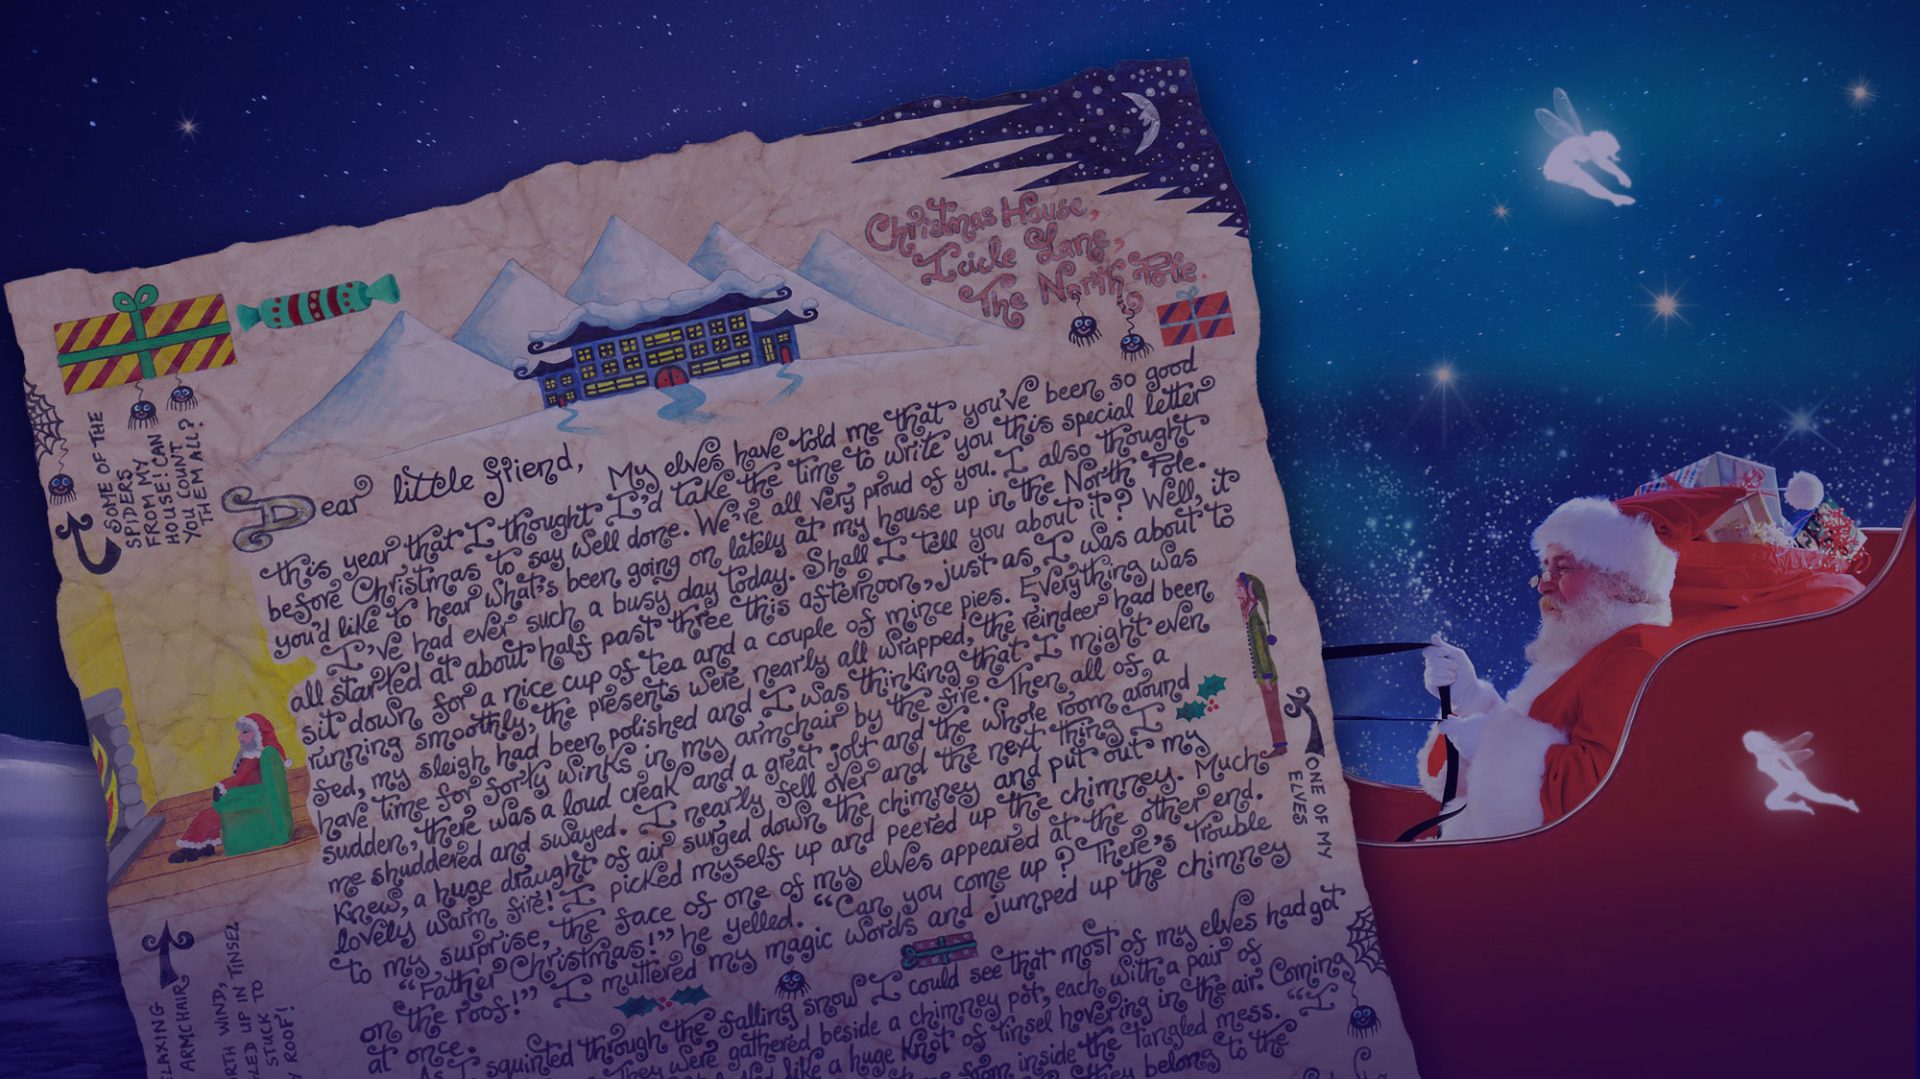 Christmas House,
Icicle Lane,
The North Pole.
SOME OF THE
SPIDERS
FROM MY
HOUSE! CAN
YOU COUNT
THEM ALL?
Dear little friend, My elves have told me that you've been so good
this year that I thought I'd take the time to write you this special letter
before Christmas to say well done. We're all very proud of you. I also thought
you'd like to hear what's been going on lately at my house up in the North Pole.
I've had ever such a busy day today. Shall I tell you about it? Well, it
all started at about half past three this afternoon, just as I was about to
sit down for a nice cup of tea and a couple of mince pies. Everything was
running smoothly, the presents were nearly all wrapped, the reindeer had been
fed, my sleigh had been polished and I was thinking that I might even
have time for forty winks in my armchair by the fire. Then all of a
sudden, there was a loud creak and a great jolt and the whole room around
me shuddered and swayed. I nearly fell over and the next thing I
knew, a huge draught of air surged down the chimney and put out my
lovely warm fire! I picked myself up and peered up the chimney. Much
to my surprise, the face of one of my elves appeared at the other end.
"Father Christmas!" he yelled. "Can you come up? There's trouble
on the roof!" I muttered my magic words and jumped up the chimney
at once.
As I squinted through the falling snow I could see that most of my elves had got
They were gathered beside a chimney pot, each with a pair of
like a huge knot of tinsel hovering in the air. Coming
from inside the tangled mess. "I
they belong to the
ONE OF MY
ELVES
RELAXING
ARMCHAIR
NORTH WIND,
UP IN TINSEL
STUCK TO
ROOF!